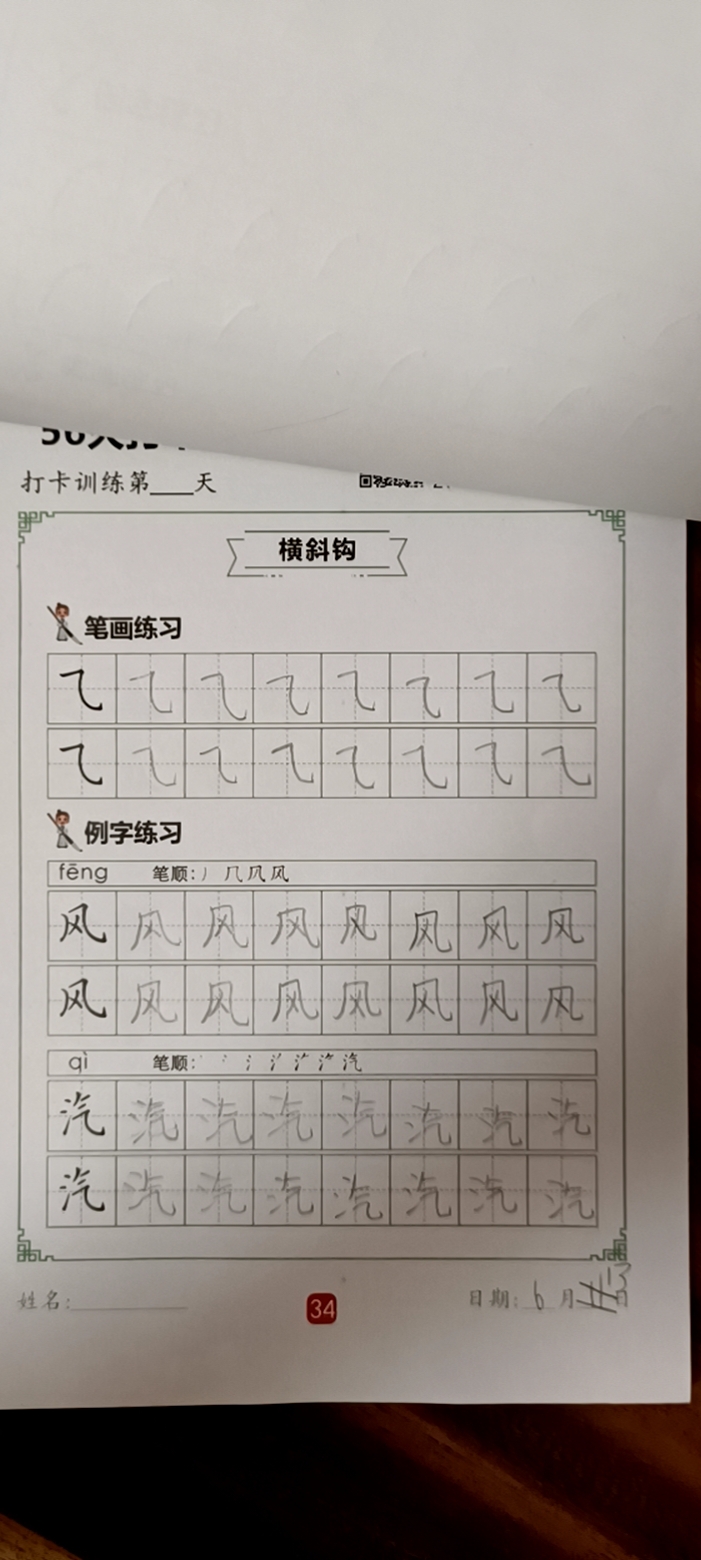 打卡训练第____天
横斜钩
笔画练习
乁 乁 乁 乁 乁 乁 乁 乁
乁 乁 乁 乁 乁 乁 乁 乁
例字练习
fēng 笔顺: 丿 几 凡 风
风 风 风 风 风 风 风 风
风 风 风 风 风 风 风 风
qì 笔顺:
汽 汽 汽 汽 汽 汽 汽 汽
汽 汽 汽 汽 汽 汽 汽 汽
姓名:
34
日期: 6 月 日